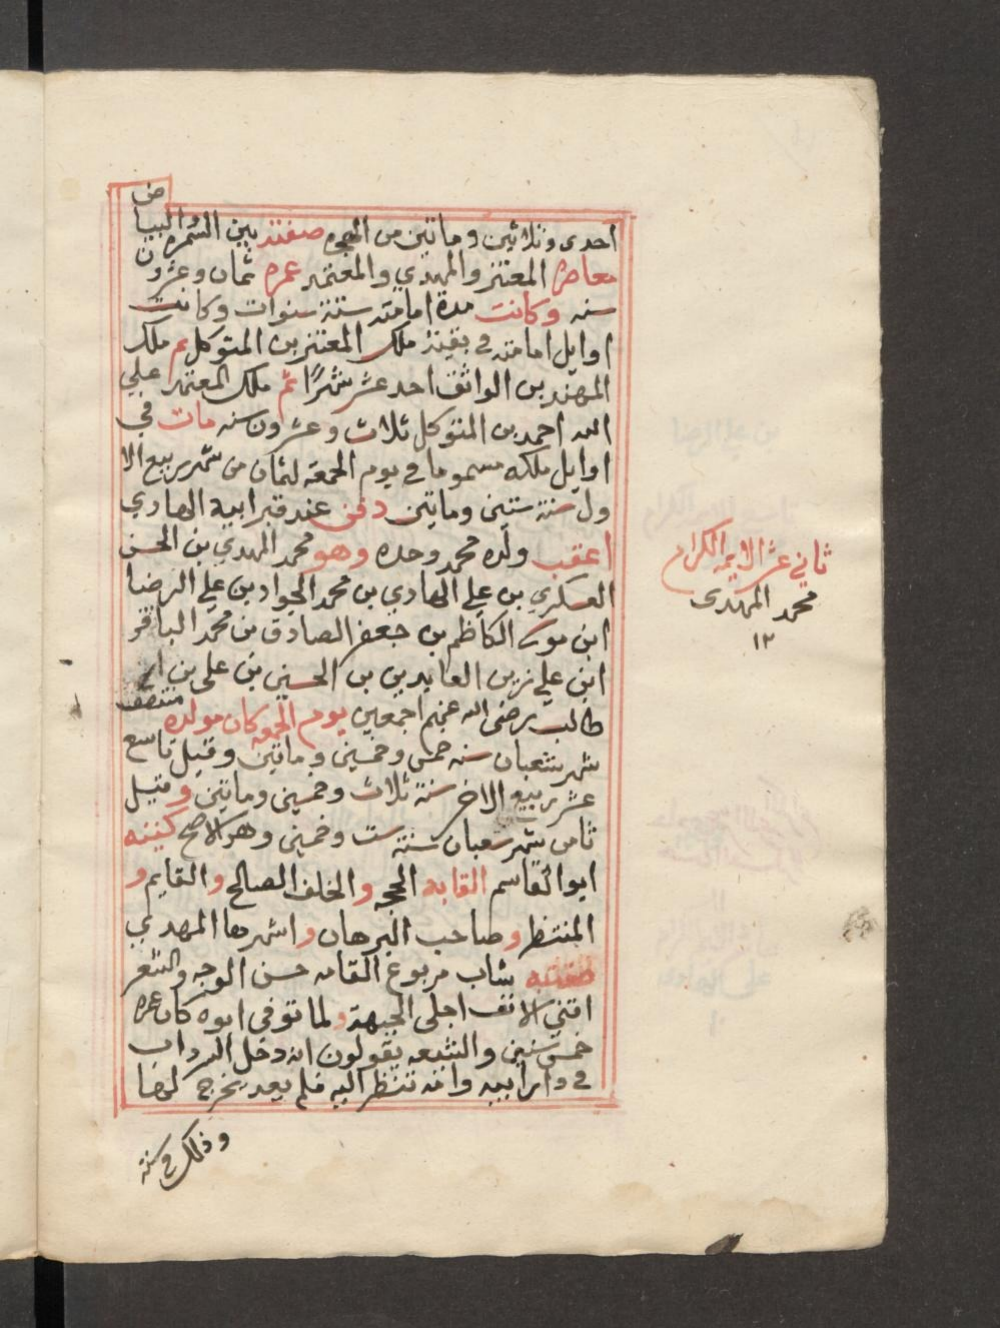 احدى وثلاثين وماتين من الهجره صفته بين السمره والبياض
معاصره المعتز والمهدي والمعتمد عمره ثمان وعشرون
سنه وكانت مدة امامته ستة سنوات وكانت
اوايل امامته في بقية ملك المعتز بن المتوكل ثم ملك
المهتد بن الواثق احد عشر شهرًا ثم ملك المعتمد علي
الله احمد بن المتوكل ثلاث وعشرون سنه مات في
اوايل ملكه مسموما في يوم الجمعة لثمان من شهر ربيع الا
ول سنة ستين وماتين دفن عند قبر ابيه الهادي
اعقب ولده محمد وحده وهو محمد المهدي بن الحسن
العسكري بن علي الهادي بن محمد الجواد بن علي الرضا
ابن موسى الكاظم بن جعفر الصادق بن محمد الباقر
ابن علي زين العابدين بن الحسين بن علي بن ابي
طالب رضى الله عنهم اجمعين يوم الجمعه كان مولده منتصف
شهر شعبان سنه خمس وخمسين وماتين وقيل تاسع
عشر ربيع الاخر سنة ثلاث وخمسين وماتين وقيل
ثامن شهر شعبان سنة ست وخمسين وهو الاصح كنيته
ابو القاسم القابه الحجه والخلف الصالح والقايم و
المنتظر وصاحب البرهان واشهرها المهدي
صفته شاب مربوع القامه حسن الوجه والشعر
اقني الانف اجلى الجبهة ولما توفى ابوه كان عمره
خمس سنين والشيعه يقولون انه دخل السرداب
في دار ابيه وامه تنتظر اليه فلم يعد يخرج لها
وذلك في سنة
ثاني عشر الايمه الكرام
محمد المهدى
١٢